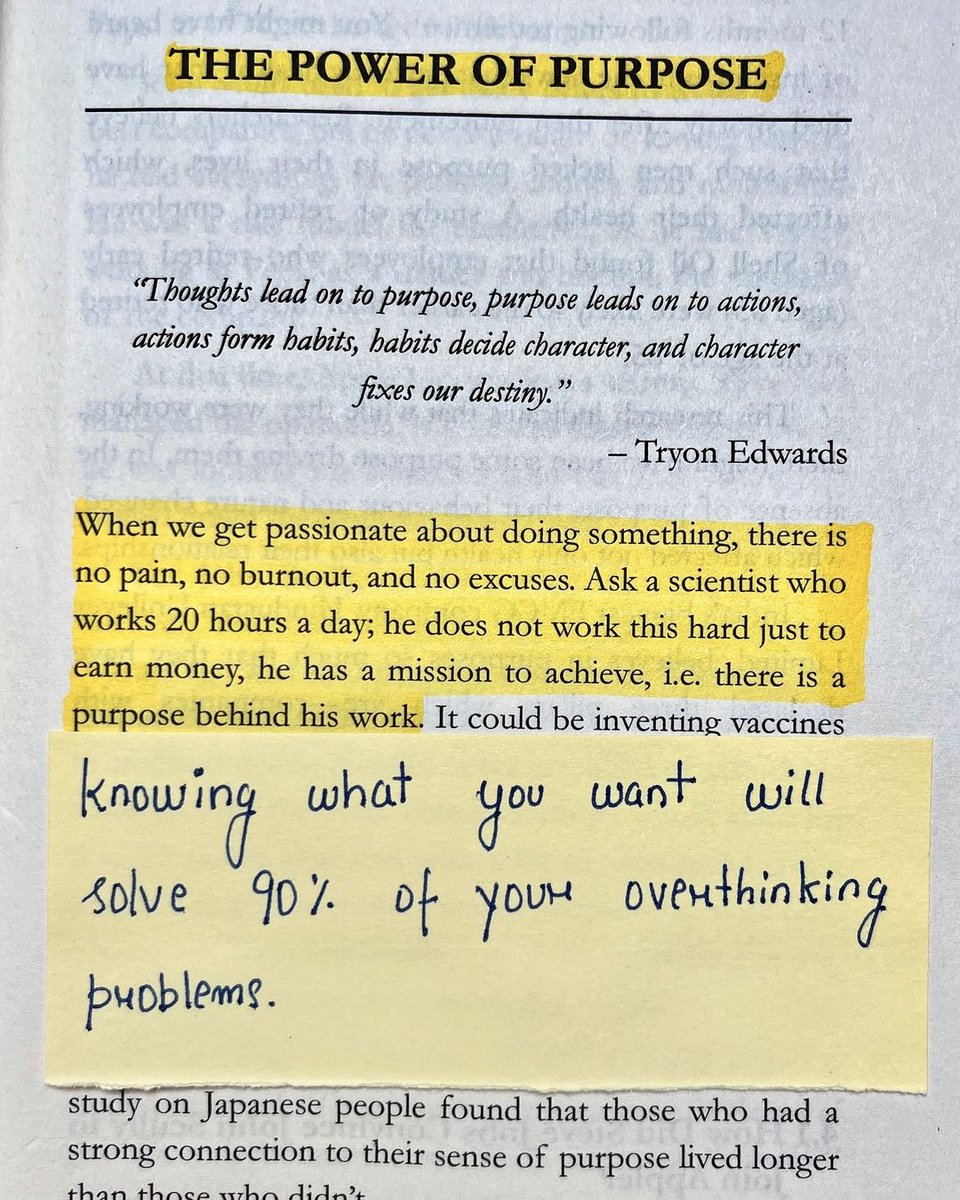 THE POWER OF PURPOSE
“Thoughts lead on to purpose, purpose leads on to actions,
actions form habits, habits decide character, and character
fixes our destiny.”
– Tryon Edwards
When we get passionate about doing something, there is
no pain, no burnout, and no excuses. Ask a scientist who
works 20 hours a day; he does not work this hard just to
earn money, he has a mission to achieve, i.e. there is a
purpose behind his work. It could be inventing vaccines
knowing what you want will
solve 90% of your overthinking
problems.
study on Japanese people found that those who had a
strong connection to their sense of purpose lived longer
than those who didn’t